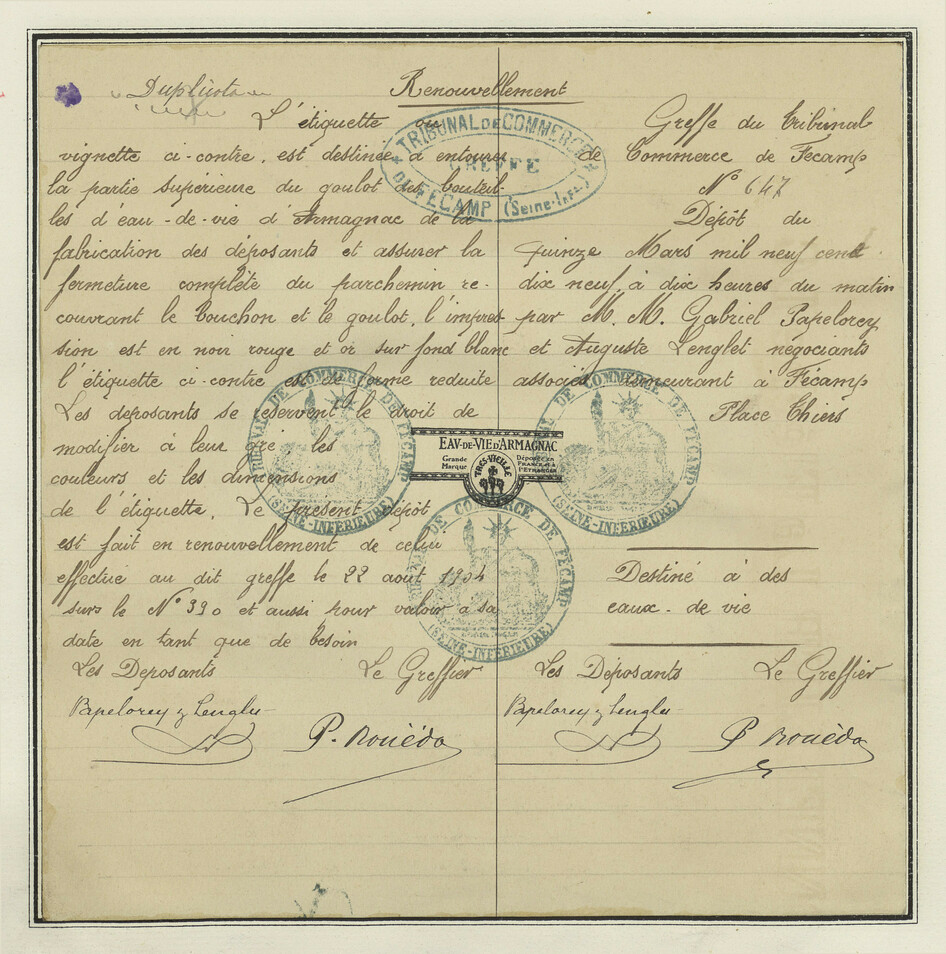 Duplicata
Renouvellement
L'étiquette ou
vignette ci-contre, est destinée à entourer
la partie supérieure du goulot des bouteil-
les d'eau-de-vie d'Armagnac de la
fabrication des déposants et assurer la
fermeture complète du parchemin re-
couvrant le bouchon et le goulot, l'impres-
sion est en noir rouge et or sur fond blanc
l'étiquette ci-contre est de forme reduite
Les deposants se réservent le droit de
modifier à leur gré, les
couleurs et les dimensions
de l'étiquette. Le présent dépôt
est fait en renouvellement de celui
effectué au dit greffe le 22 août 1904
sur le N° 390 et aussi pour valoir a sa
date en tant que de besoin
Les Deposants Le Greffier
Papelorey & Lenglet
P. Rouèda
TRIBUNAL DE COMMERCE
GREFFE
DE FÉCAMP (Seine-Infre)
Greffe du Tribunal
de Commerce de Fécamp
N° 647
Dépôt du
Quinze Mars mil neuf cent
dix neuf, à dix heures du matin
par M. M. Gabriel Papelorey
et Auguste Lenglet négociants
associés demeurant à Fécamp
Place Thiers
EAV-DE-VIE D'ARMAGNAC
Grande
Marque
TRÈS-VIEILLE
Déposée en
France et à
l'Etranger
TRIBUNAL DE COMMERCE DE FÉCAMP
(SEINE-INFÉRIEURE)
TRIBUNAL DE COMMERCE DE FÉCAMP
(SEINE-INFÉRIEURE)
TRIBUNAL DE COMMERCE DE FÉCAMP
(SEINE-INFÉRIEURE)
Destiné à des
eaux-de vie
Les Déposants Le Greffier
Papelorey & Lenglet
P Rouèda